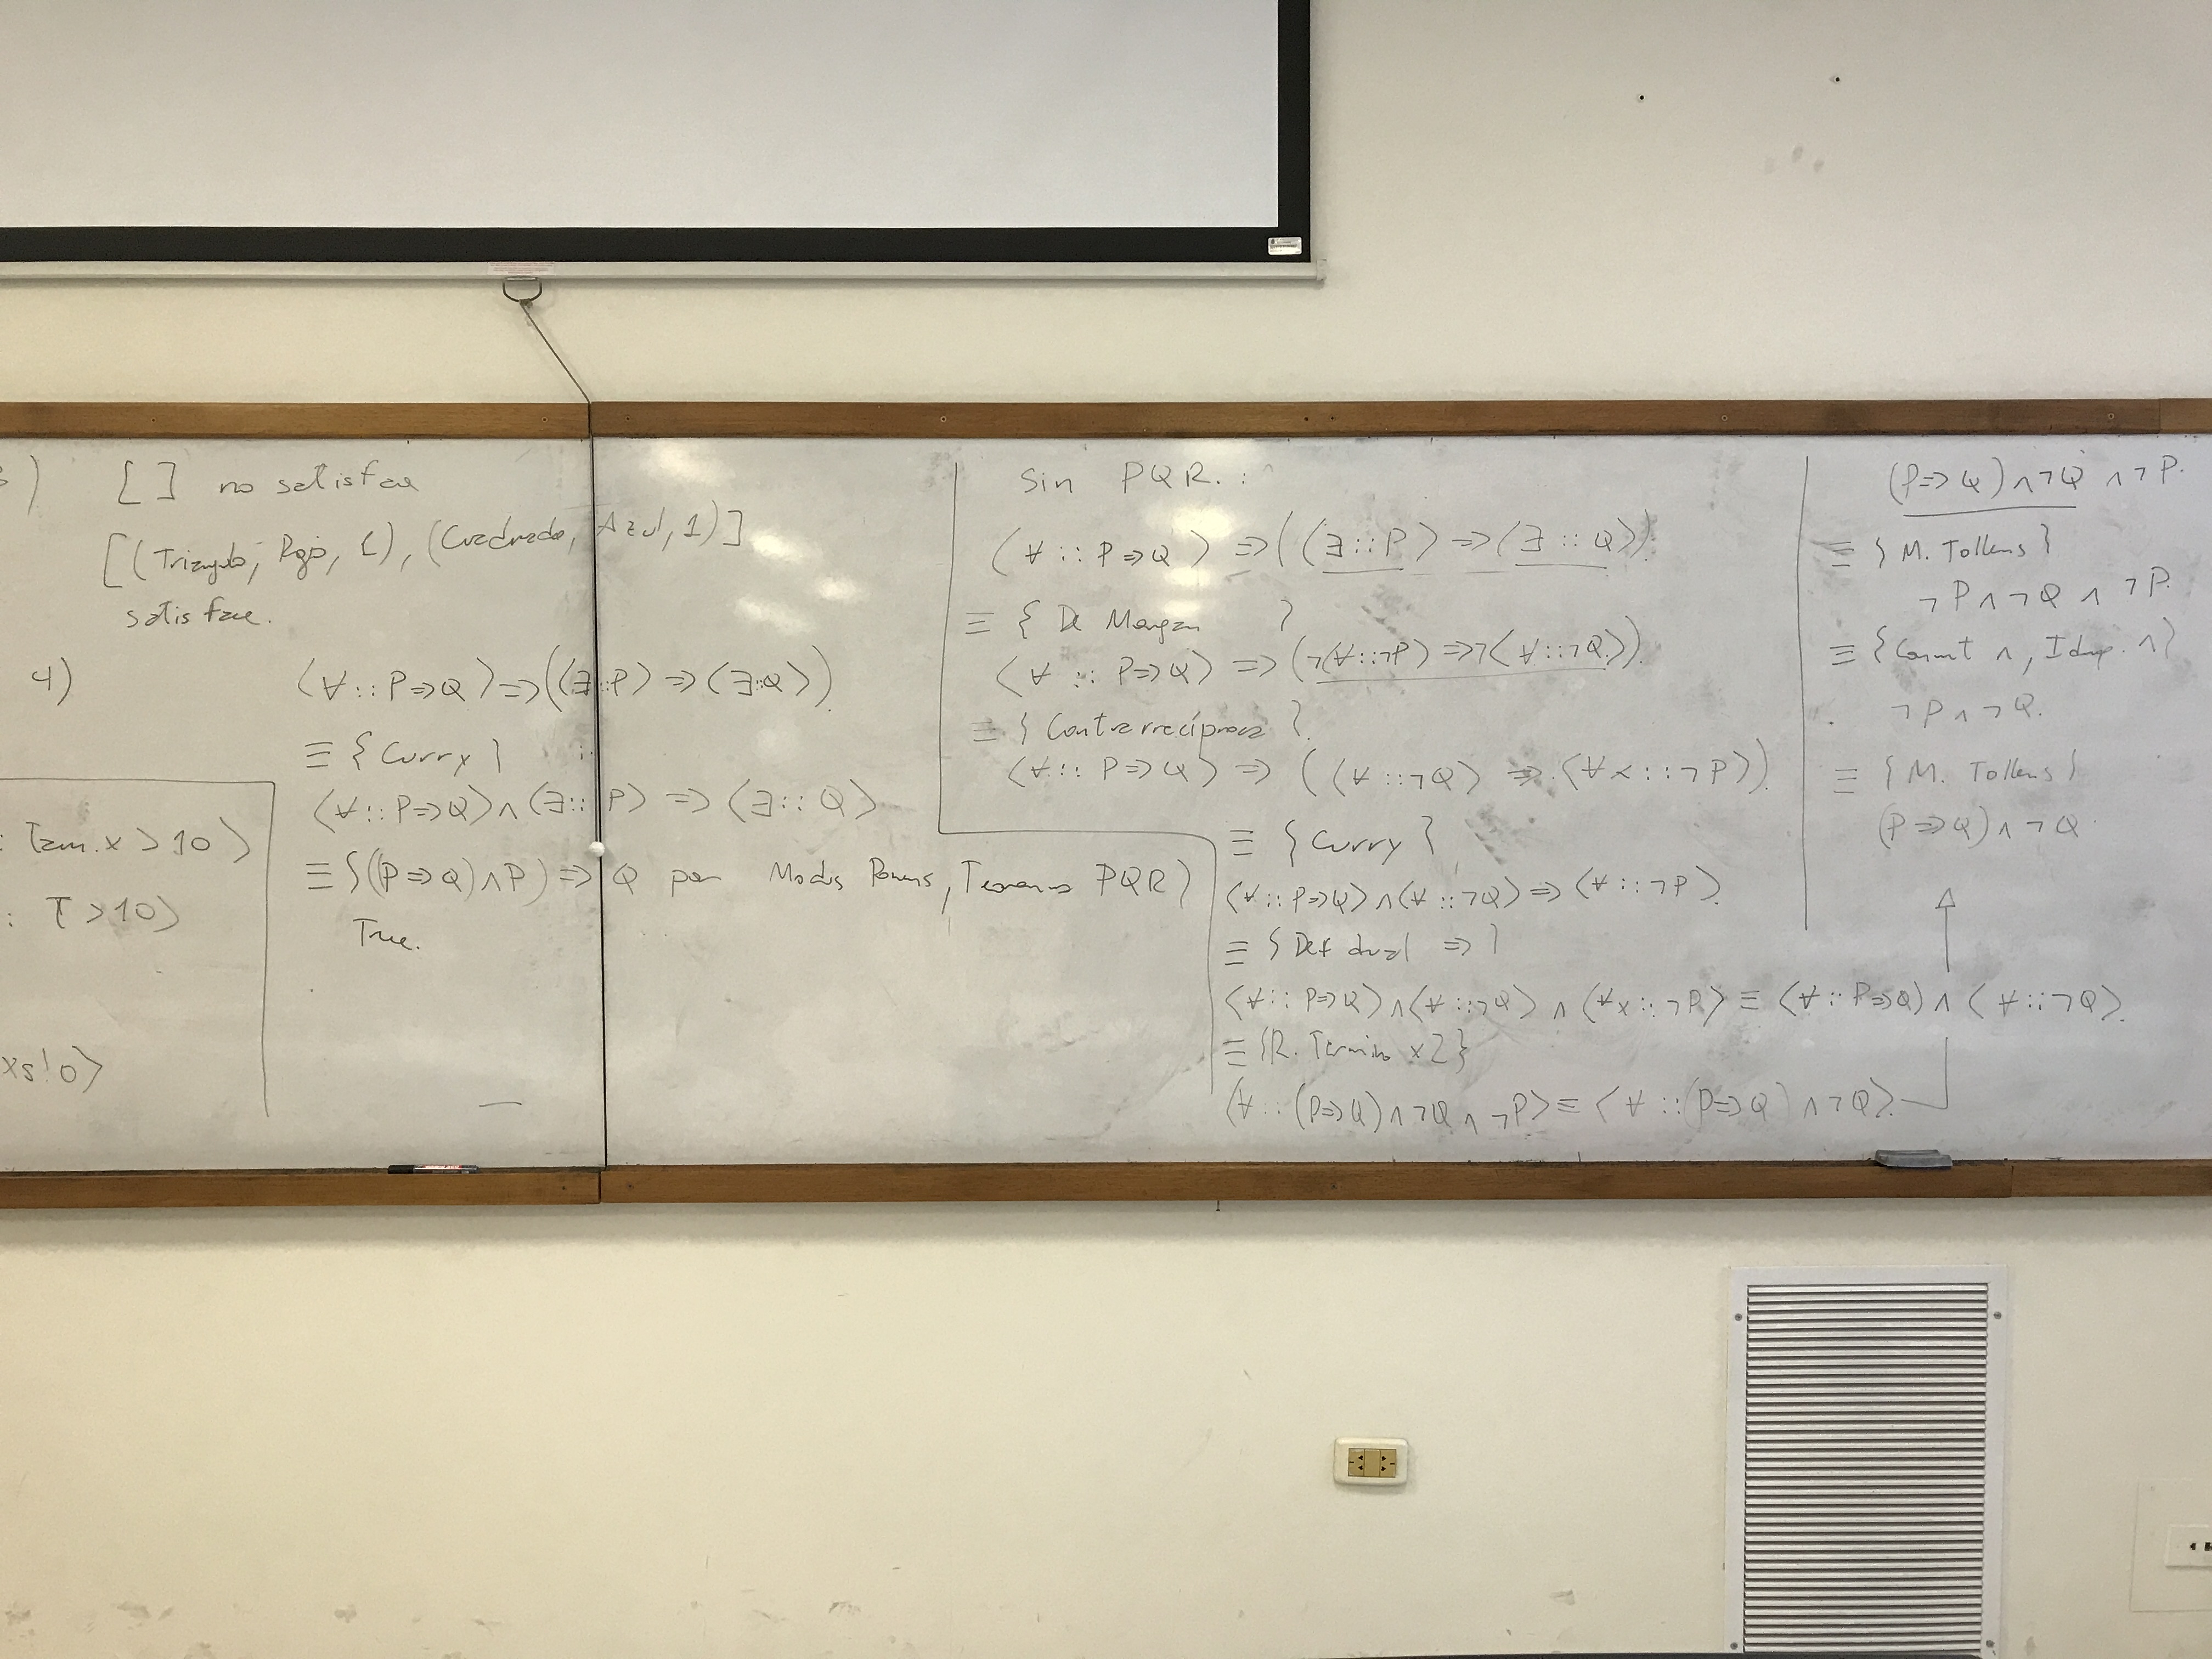 ) [ ] no satisface
[(Triangulo, Rojo, 1), (Cuadrado, Azul, 1)]
satisface.
4) ⟨∀::P⇒Q⟩⇒(⟨∃::P⟩⇒⟨∃::Q⟩).
≡ {Curry}
⟨∀::P⇒Q⟩∧⟨∃::P⟩ ⇒ ⟨∃::Q⟩
≡ {((P⇒Q)∧P)⇒Q por Modus Ponens, Teorema PQR}
True.
: Tam.x > 10⟩
: T > 10⟩
xs!0⟩
Sin PQR. :
⟨∀::P⇒Q⟩ ⇒ (⟨∃::P⟩ ⇒ ⟨∃::Q⟩)
≡ { De Morgan }
⟨∀::P⇒Q⟩ ⇒ (¬⟨∀::¬P⟩ ⇒ ¬⟨∀::¬Q⟩).
≡ { Contrarrecíproca }
⟨∀::P⇒Q⟩ ⇒ (⟨∀::¬Q⟩ ⇒ ⟨∀x::¬P⟩).
≡ {Curry}
⟨∀::P⇒Q⟩∧⟨∀::¬Q⟩ ⇒ ⟨∀::¬P⟩.
≡ {Def dual ⇒}
⟨∀::P⇒Q⟩∧⟨∀::¬Q⟩ ∧ ⟨∀x::¬P⟩ ≡ ⟨∀::P⇒Q⟩ ∧ ⟨∀::¬Q⟩.
≡ {R. Término x2}
⟨∀::(P⇒Q)∧¬Q∧¬P⟩ ≡ ⟨∀::(P⇒Q)∧¬Q⟩.
(P⇒Q)∧¬Q ∧¬P.
≡ {M. Tollens}
¬P∧¬Q∧¬P.
≡ {Conmt ∧, Idmp. ∧}
¬P∧¬Q.
≡ {M. Tollens}
(P⇒Q)∧¬Q